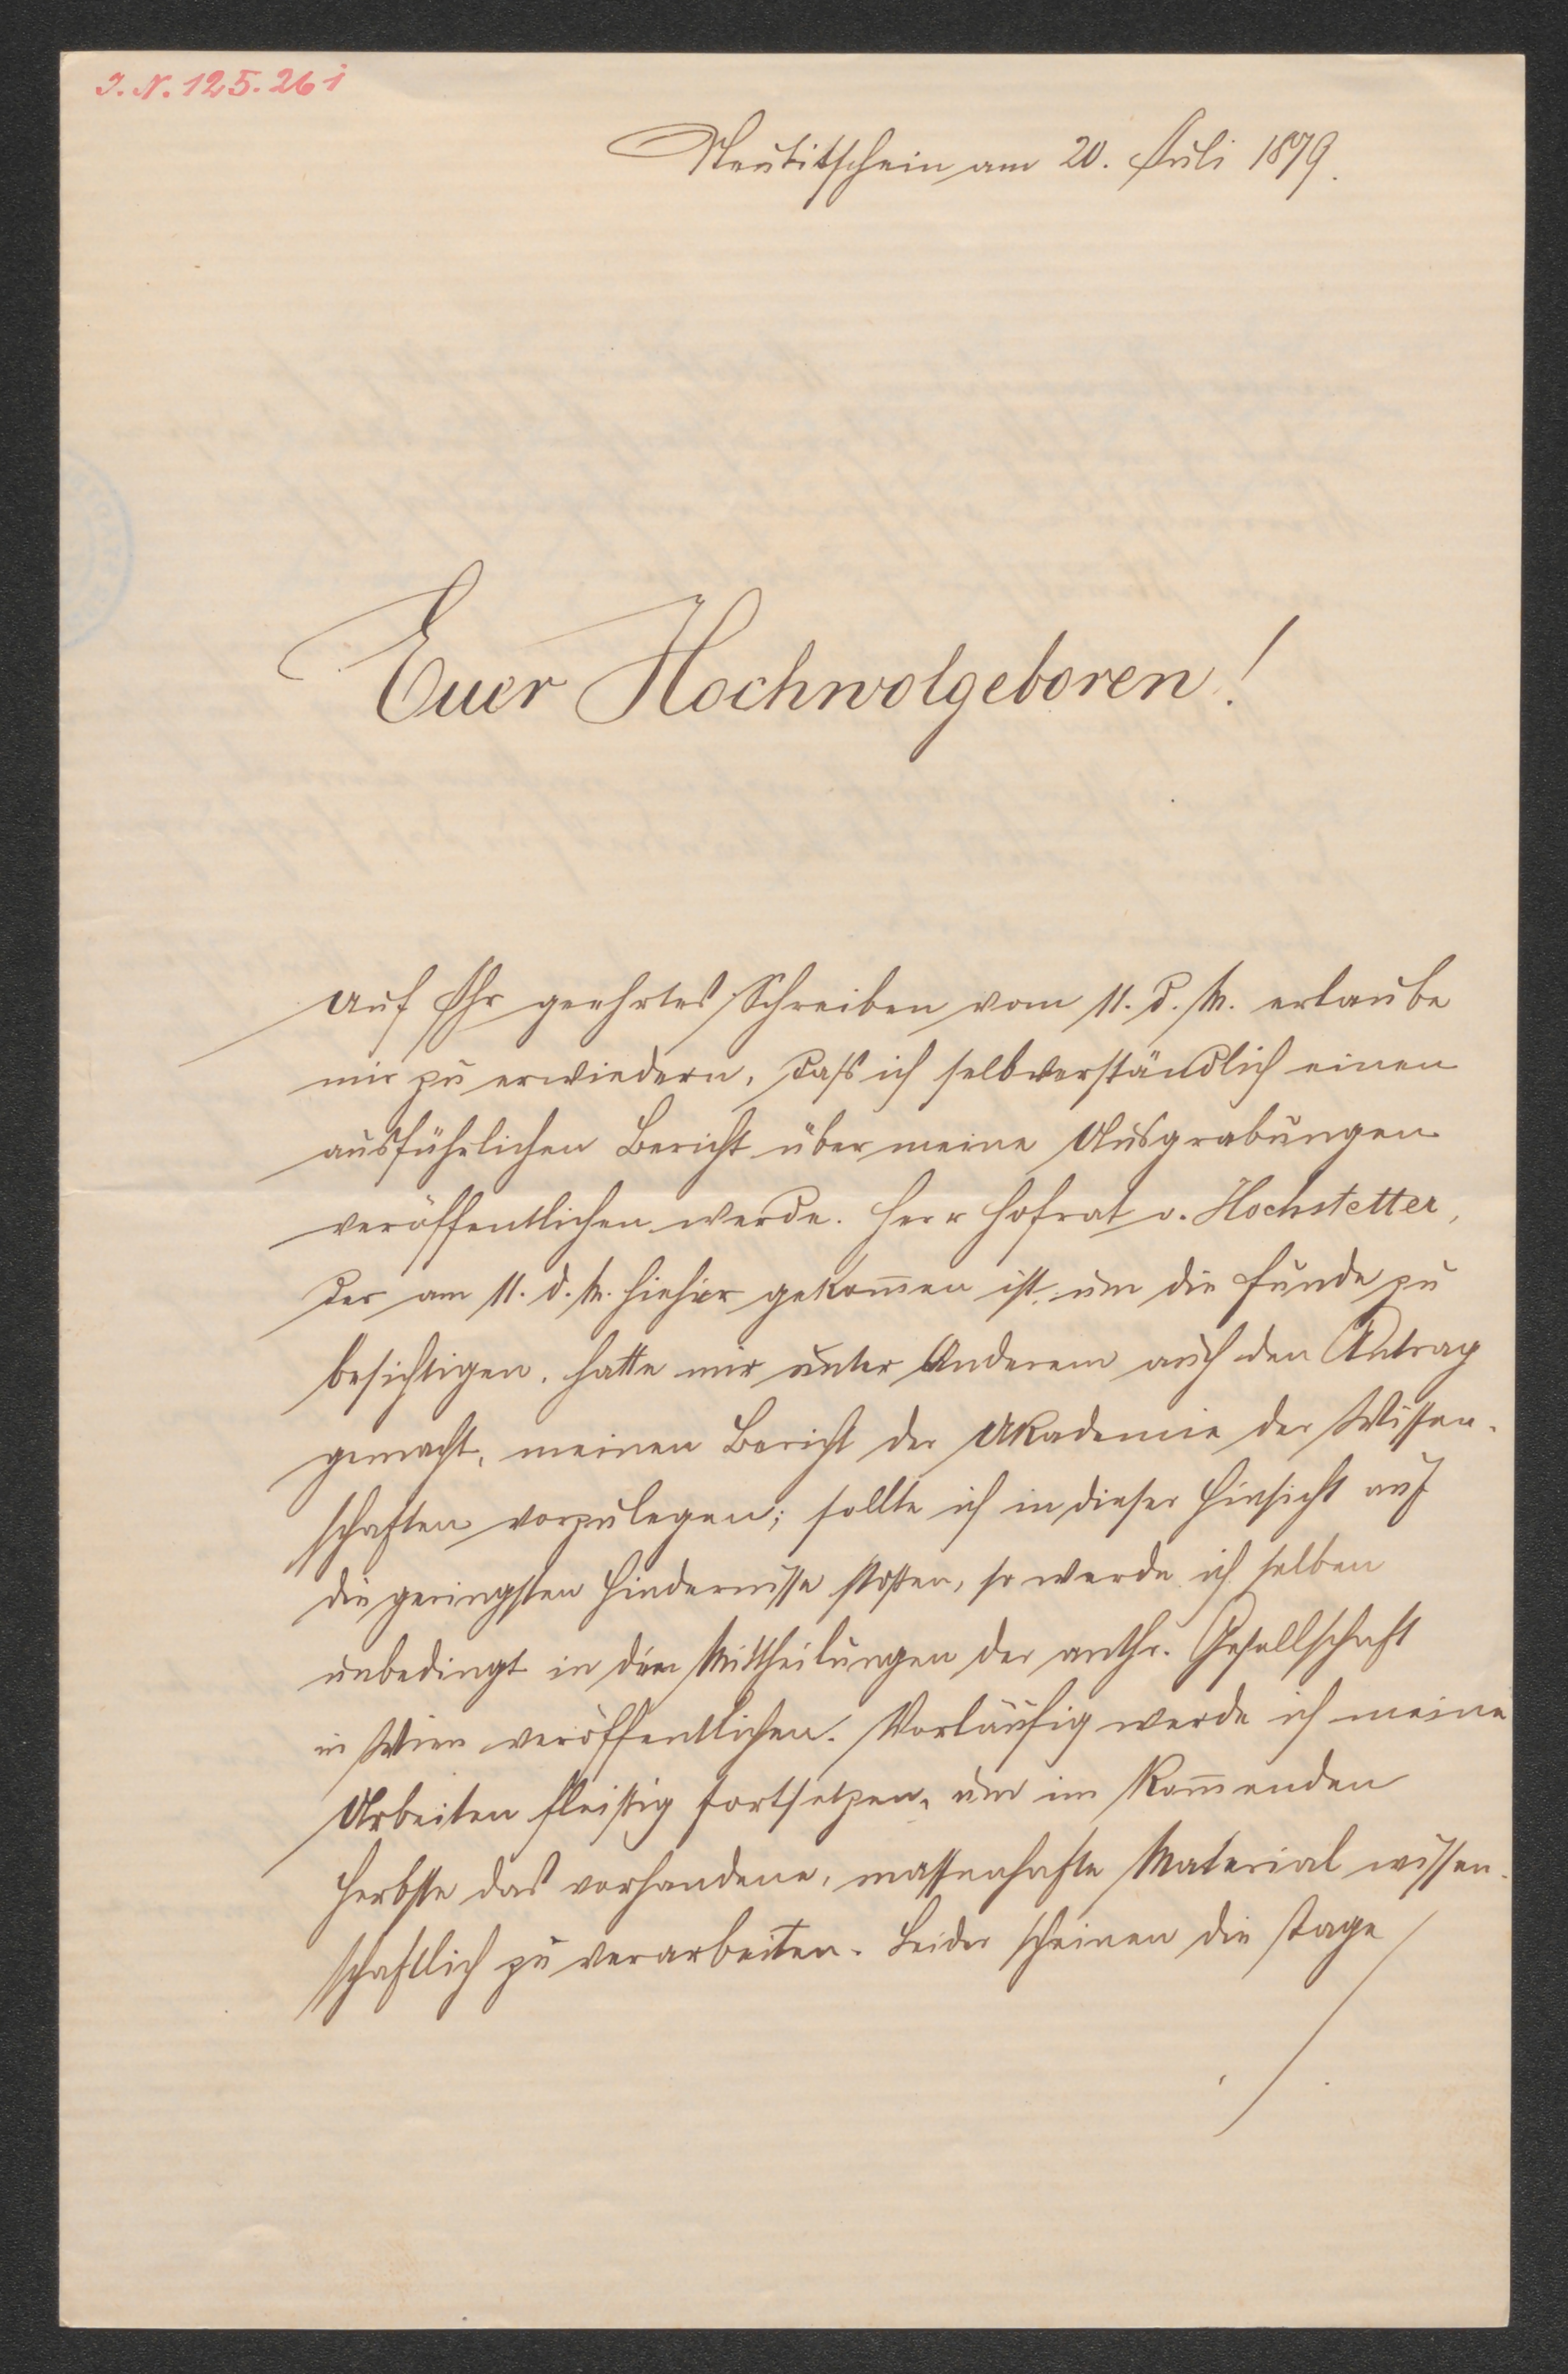 I. N. 125.261
Neutitschein am 20. Juli 1879.
Euer Hochwolgeboren!
Auf Ihr geehrtes Schreiben vom 11. d. M. erlaube
mir zu erwiedern, daß ich selbverständlich einen
ausführlichen Bericht über meine Ausgrabungen
veröffentlichen werde. Herr Hofrat v. Hochstetter,
der am 11. d. M. hieher gekom̄en ist um die Funde zu
besichtigen, hatte mir unter Anderem auch den Antrag
gemacht, meinen Bericht der Akademie der Wissen-
schaften vorzulegen; sollte ich in dieser Hinsicht auf
die geringsten Hindernisse stoßen, so werde ich selben
unbedingt in den Mittheilungen der anthr. Gesellschaft
in Wien veröffentlichen. Vorläufig werde ich meine
Arbeiten fleißig fortsetzen, um im kom̄enden
Herbste das vorhandene, massenhafte Material wissen-
schaftlich zu verarbeiten. Leider scheinen die Tage